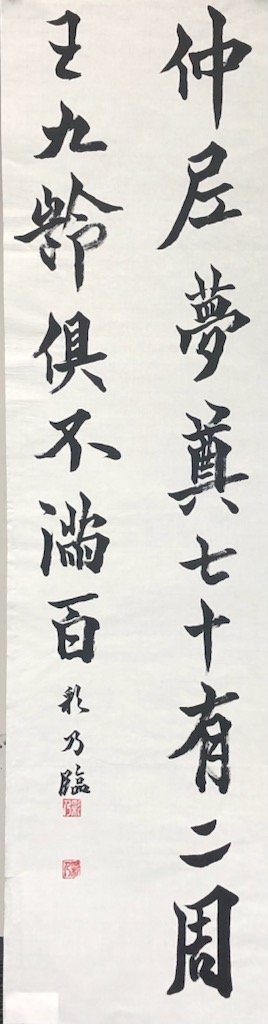 仲尼夢奠七十有二周
王九齡俱不滿百
彩乃臨